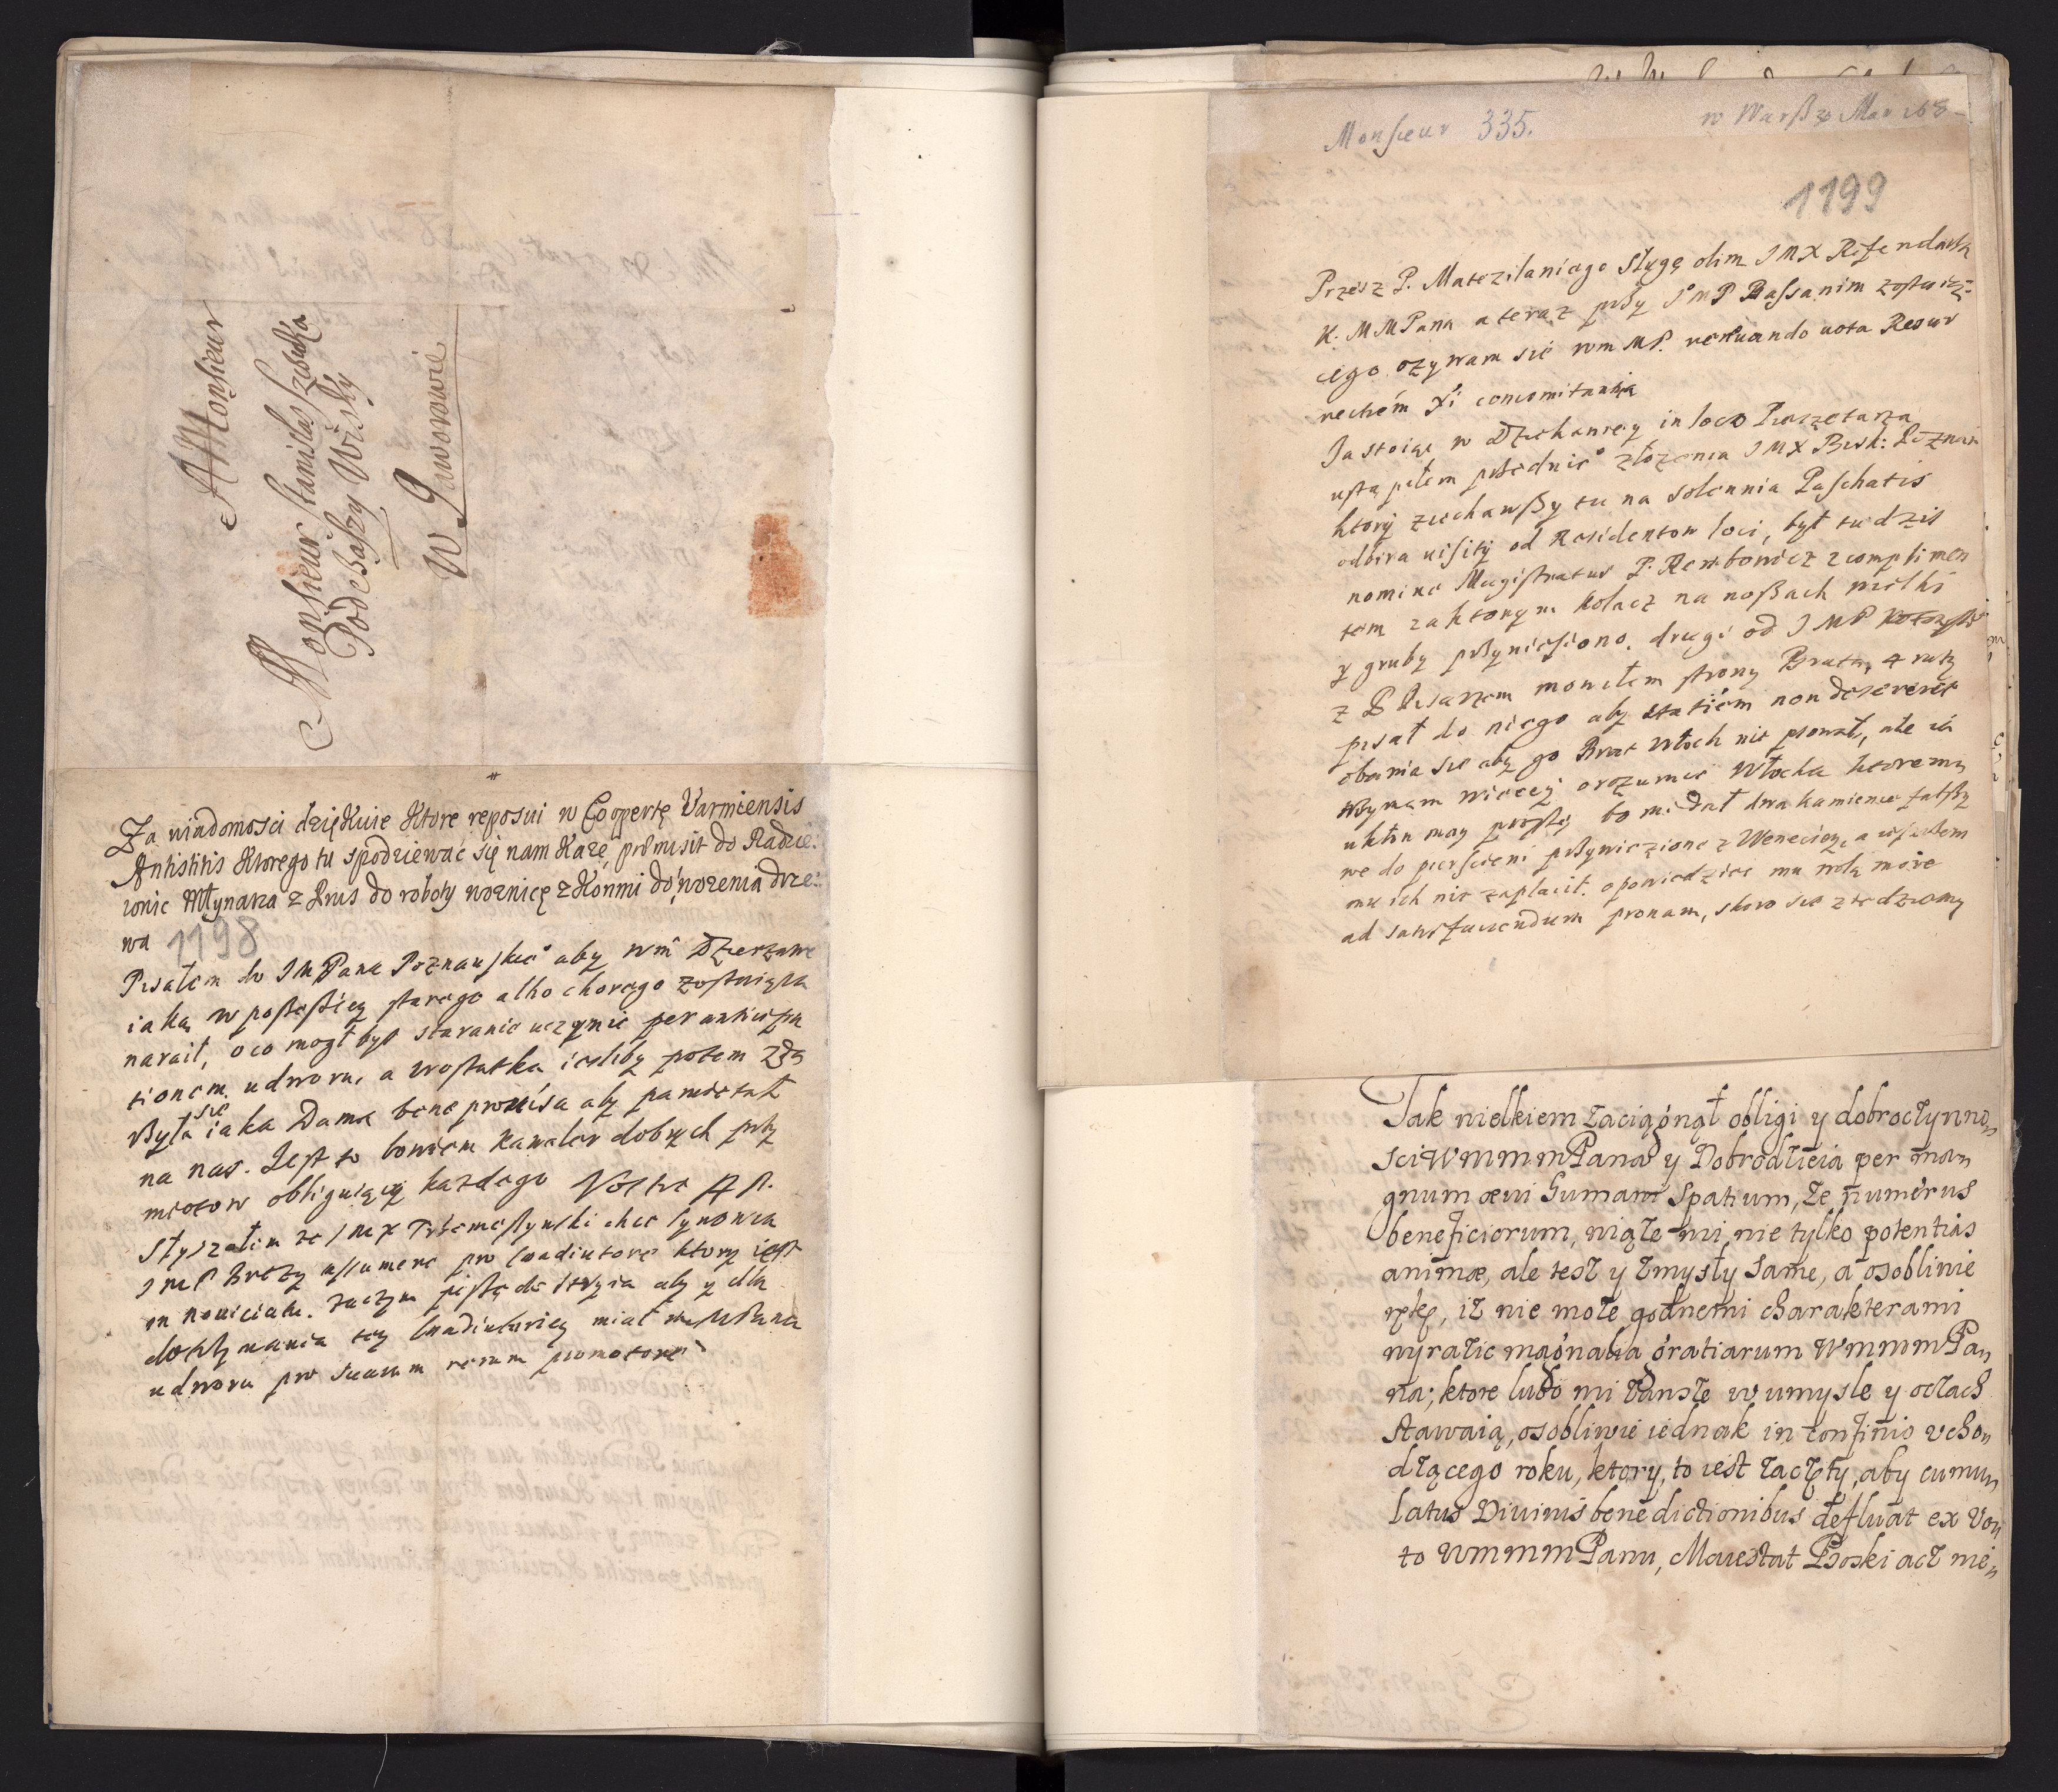 A Monsieur
Monsieur Stanislas Szczuka
Podczaszy Wisky
w Jaworowie
Za wiadomosci dziękuie ktore reposui w Coopertę Varmiensis
Antistitis ktorego tu spodziewać się nam każe, promisit do Radzie:
iowic Młynarza z Prus do roboty woznicę z końmi do wozenia drze:
wa 1198
Pisałem do JMPana Poznanskie° aby wm Dzierzawe
iaką w possessięy starego albo chorego zostaiąca
narait, o co mogł bys staranie uczynic per anticipa
tionem u dworu, a wostatku iesliby potem zda
rzyła się iaka Dama bene provisa aby pamietał
na nas. Jest to bowiem kawaler dobrych przy
miotow obliguiący kazdego Vostre A A.
Słyszałem ze JMX Przemeslynski chce synowca
JMP Brezy assumere pro Coadiutore ktory iest
in noviciatu. zaczym piszę do stryia aby y dla
otrzymania tey Coadiutoriey miał MPana
u dworu pro suarum rerum promotore
Monsieur 335. w Warß 30 Mar 168
1199
Przesz P. Matezilaniego Sługę olim JMX Referendarza
K. MMPana a teraz przy JMP Bassanim zostaiąc-
cego ozywam się wm MP. renuando vota Resur
rectiom Xi concomitantia
Ja stoiąc w Dziekaniey in loco
ustąpiłem przednie° złozenia JMX Bisk: Poznan
ktory ziechawszy tu na Solennia Paschatis
odbira visity od Residentow loci, był tu dzis
nomine Magistratus P. Rembowicz z complimen
tem za ktorym kołacz na noszach wielki
y gruby przyniesiono, drugi od JMP
z P Pisarzem mowiłem strony Brata,
pisał do niego aby statiom non desereret
obawia się aby go Brat Włoch nie psował, ale ia
wzywam więcey orozumie Włocha ktoremu
ukłon moy proszę bo mi dał dwa kamienie fałszy
we do pierscieni przywiezione z Weneciey, a ieszczem
mu ich nie zapłacił. opowiedziec mu wolą moie
ad satisfaciendum pronam, skoro się ziedziemy
Tak wielkiem zaciągnął obligi y dobroczynno
sci WmmmPana y Dobrodzieia per ma
gnum ævi humani Spatium, że numerus
beneficiorum, wiąże mi nie tylko potentias
animæ, ale tesz y zmysły same, a osobliwie
rękę, iż nie może godnemi charakterami
wyrazic magnalia gratiarum WmmmPa
na; ktore lubo mi zawsze w umysle y oczach
stawaią, osobliwie iednak in confinio vcho
dzącego roku, ktory, to iest zaczęty, aby cumu
latus Divinis benedictionibus defluat ex vo
to WmmmPanu, Maiestat Boski acz nie